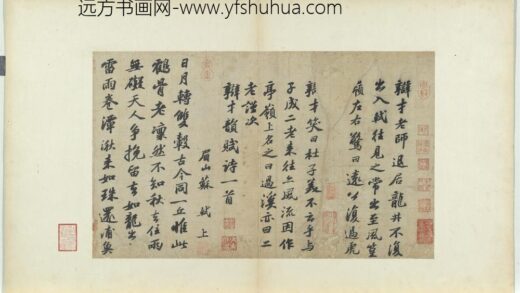 远方书画网-www.yfshuhua.com
辯才老師退居龍井不復
出入軾往見之常出至風篁
嶺左右驚曰遠公復過虎
溪矣
辯才笑曰杜子美不云乎與
子成二老來往亦風流因作
亭嶺上名之曰過溪亦曰二
老謹次
辯才韻賦詩一首
眉山蘇軾上
日月轉雙轂古今同一丘惟此
鶴骨老凜然不知秋去住兩
無礙天人爭挽留去如龍出
雷雨卷潭湫來如珠還浦魚